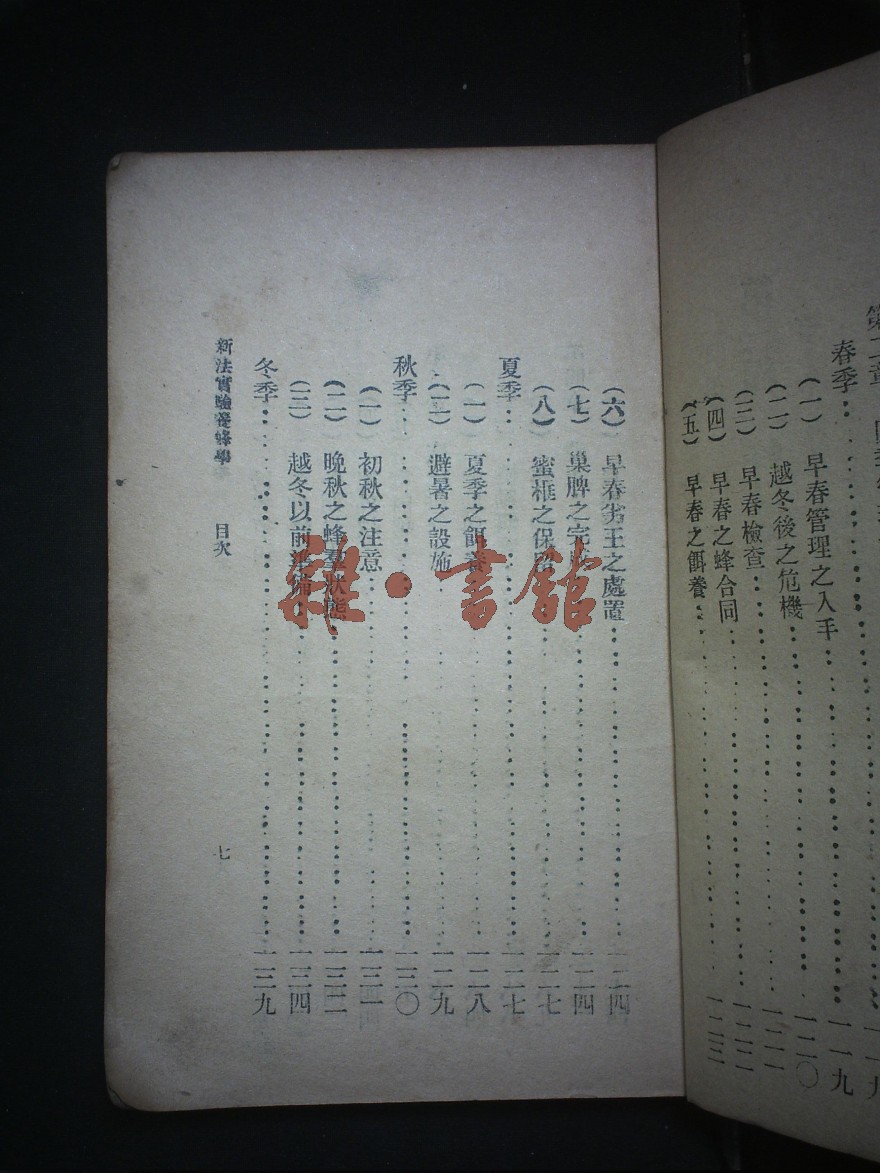 春季⋯⋯一一九
(一) 早春管理之入手⋯⋯一二〇
(二) 越冬後之危機⋯⋯一二一
(三) 早春檢查⋯⋯一二二
(四) 早春之蜂合同
(五) 早春之餌養⋯⋯
(六) 早春劣王之處置⋯⋯一二四
(七) 巢脾之完⋯⋯一二四
(八) 蜜框之保⋯⋯一二七
夏季⋯⋯一二七
(一) 夏季之餌養⋯⋯一二八
(二) 避暑之設施⋯⋯一二九
秋季⋯⋯一三〇
(一) 初秋之注意⋯⋯一三一
(二) 晚秋之蜂羣狀態⋯⋯一三二
(三) 越冬以前準備⋯⋯一三四
冬季⋯⋯一三九
新法實驗養蜂學 目次 七
雜·書館